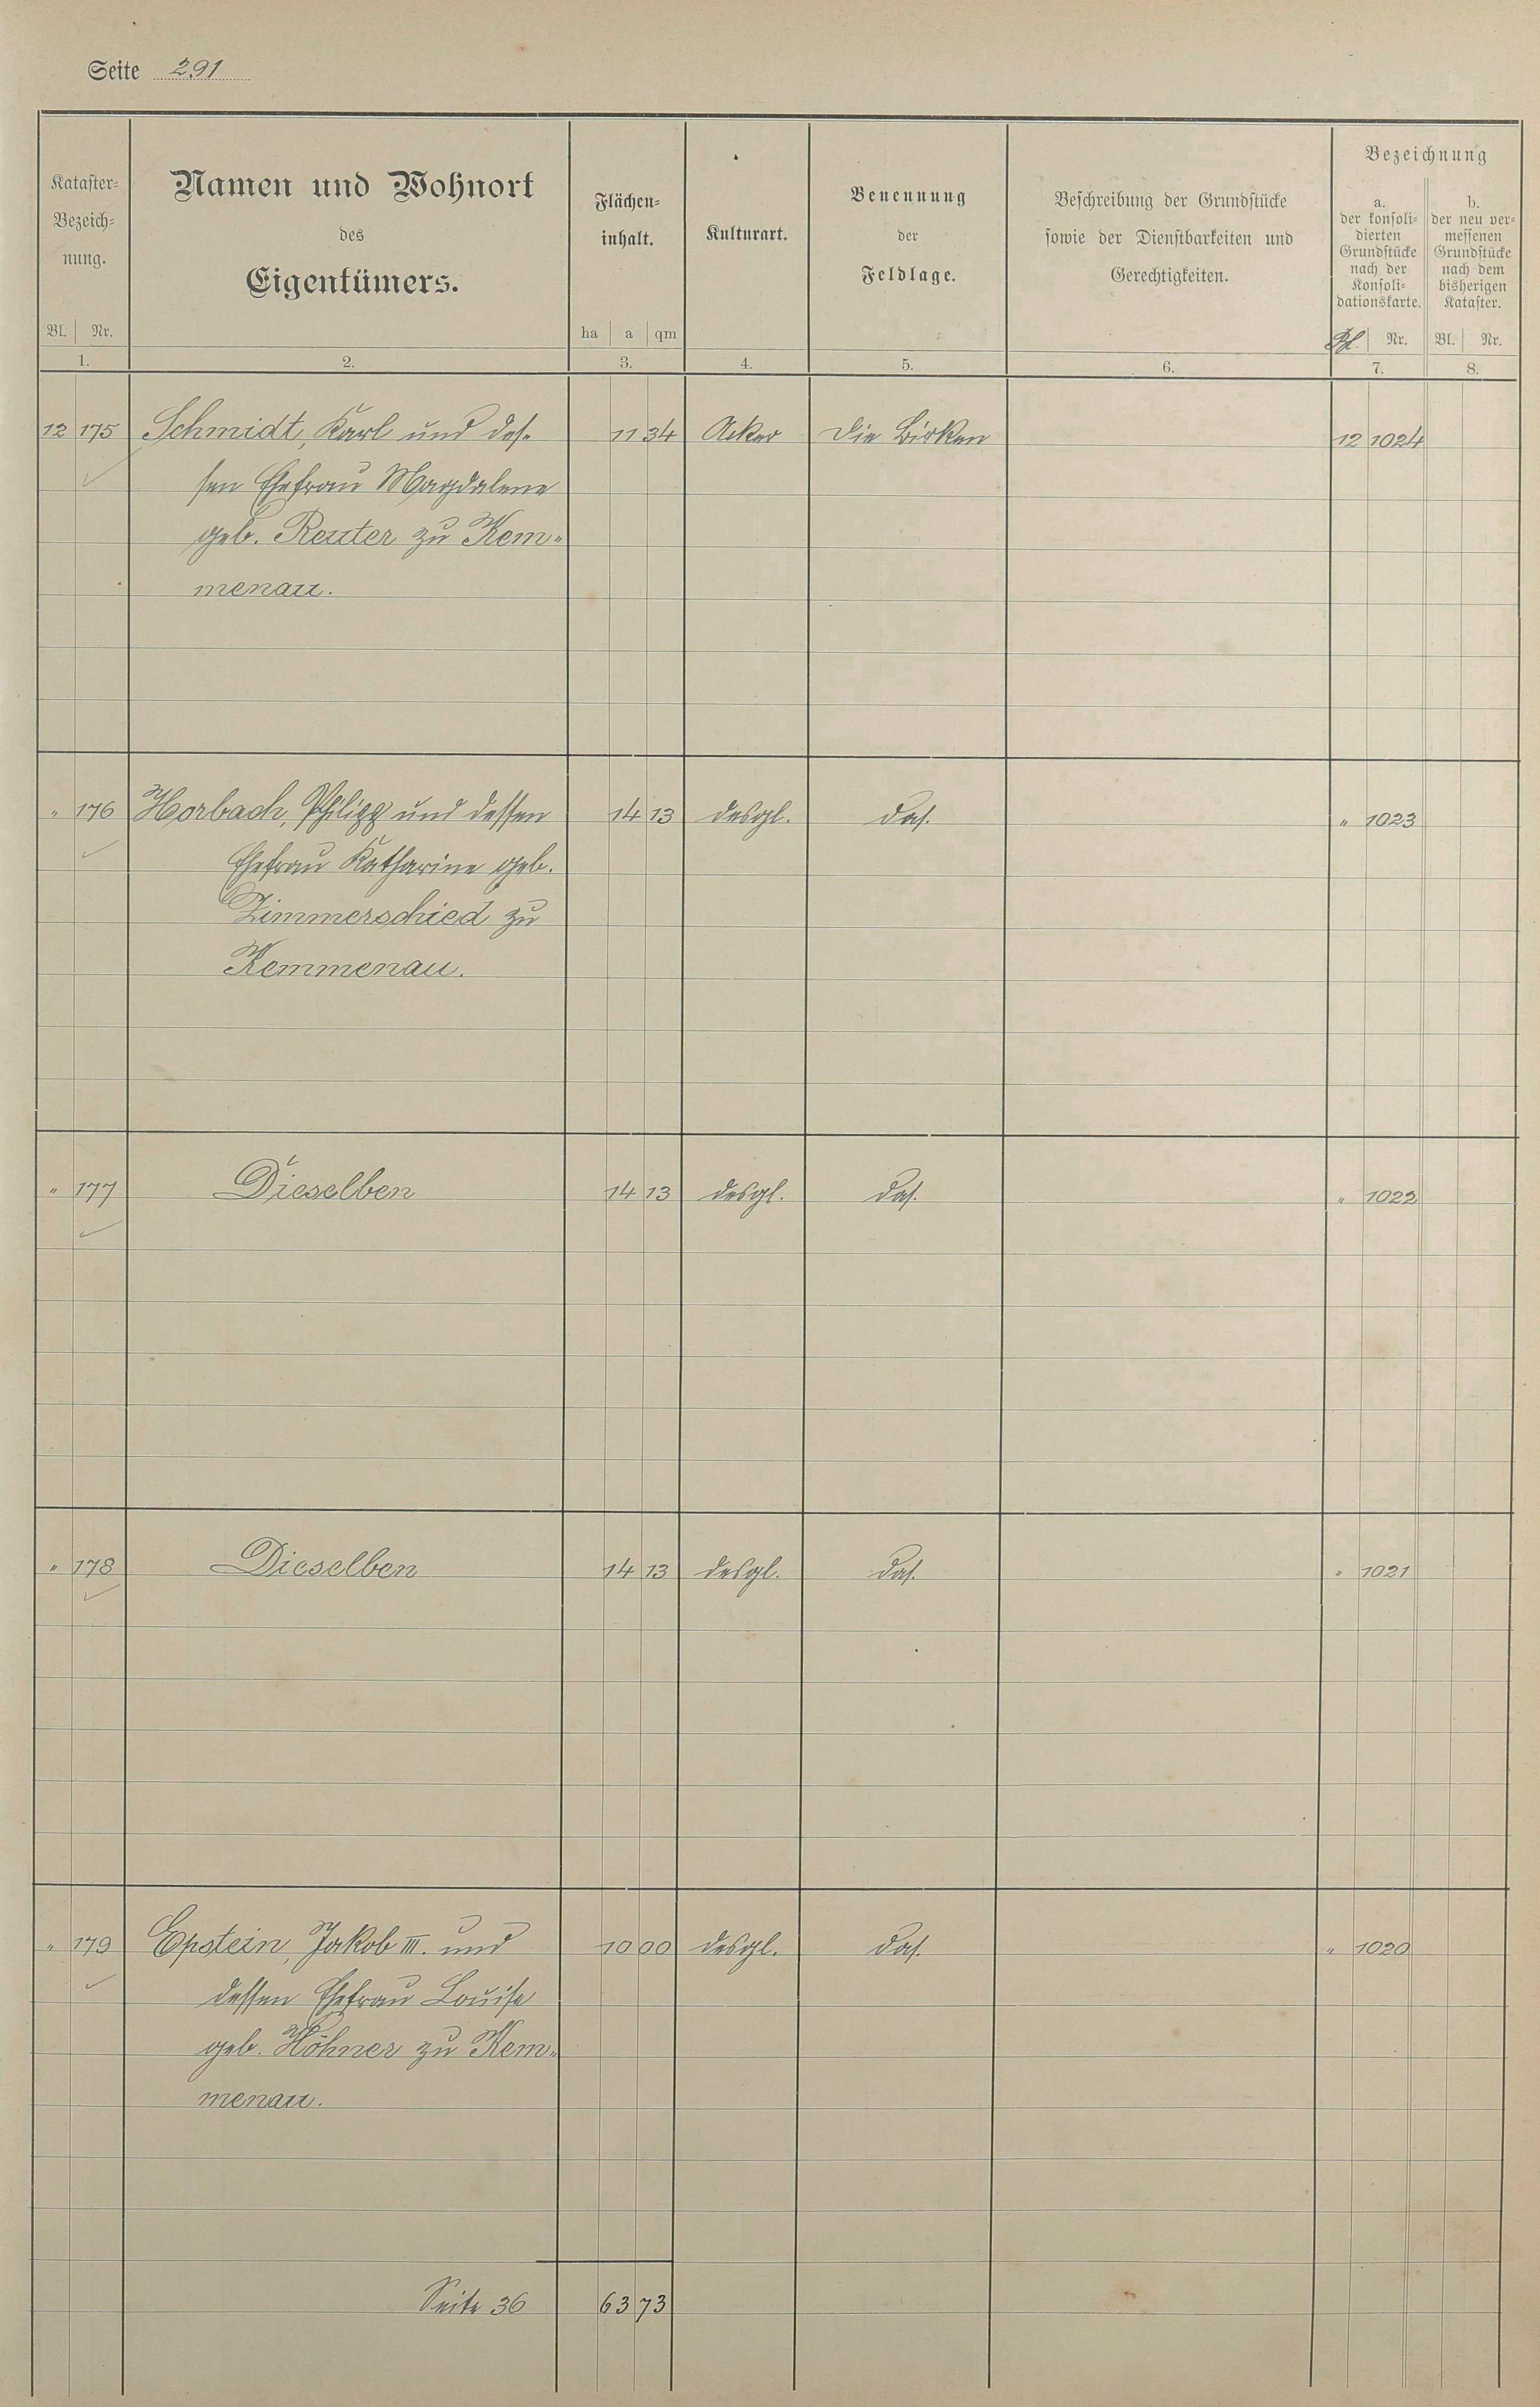 Seite 291
Kataster-
Bezeich-
nung.
Bl. Nr.
1.
Namen und Wohnort
des
Eigentümers.
2.
Flächen-
inhalt.
ha a qm
3.
Kulturart.
4.
Benennung
der
Feldlage.
5.
Beschreibung der Grundstücke
sowie der Dienstbarkeiten und
Gerechtigkeiten.
6.
Bezeichnung
a.
der konsoli-
dierten
Grundstücke
nach der
Konsoli-
dationskarte.
Nr.
7.
b.
der neu ver-
messenen
Grundstücke
nach dem
bisherigen
Kataster.
Bl. Nr.
8.
12 175 Schmidt, Karl und des- 11 34 Acker Die Birken 12 1024
sen Ehefrau Magdalene
geb. Reuter zu Kem-
menau.
" 176 Horbach, Philipp und dessen 14 13 desgl. das. " 1023
Ehefrau Katharine geb.
Zimmerschied zu
Kemmenau.
" 177 Dieselben 14 13 desgl. das. " 1022
" 178 Dieselben 14 13 desgl. das. " 1021
" 179 Epstein, Jakob III. und 10 00 desgl. das. " 1020
dessen Ehefrau Louise
geb. Höhner zu Kem-
menau.
Seite 36 63 73